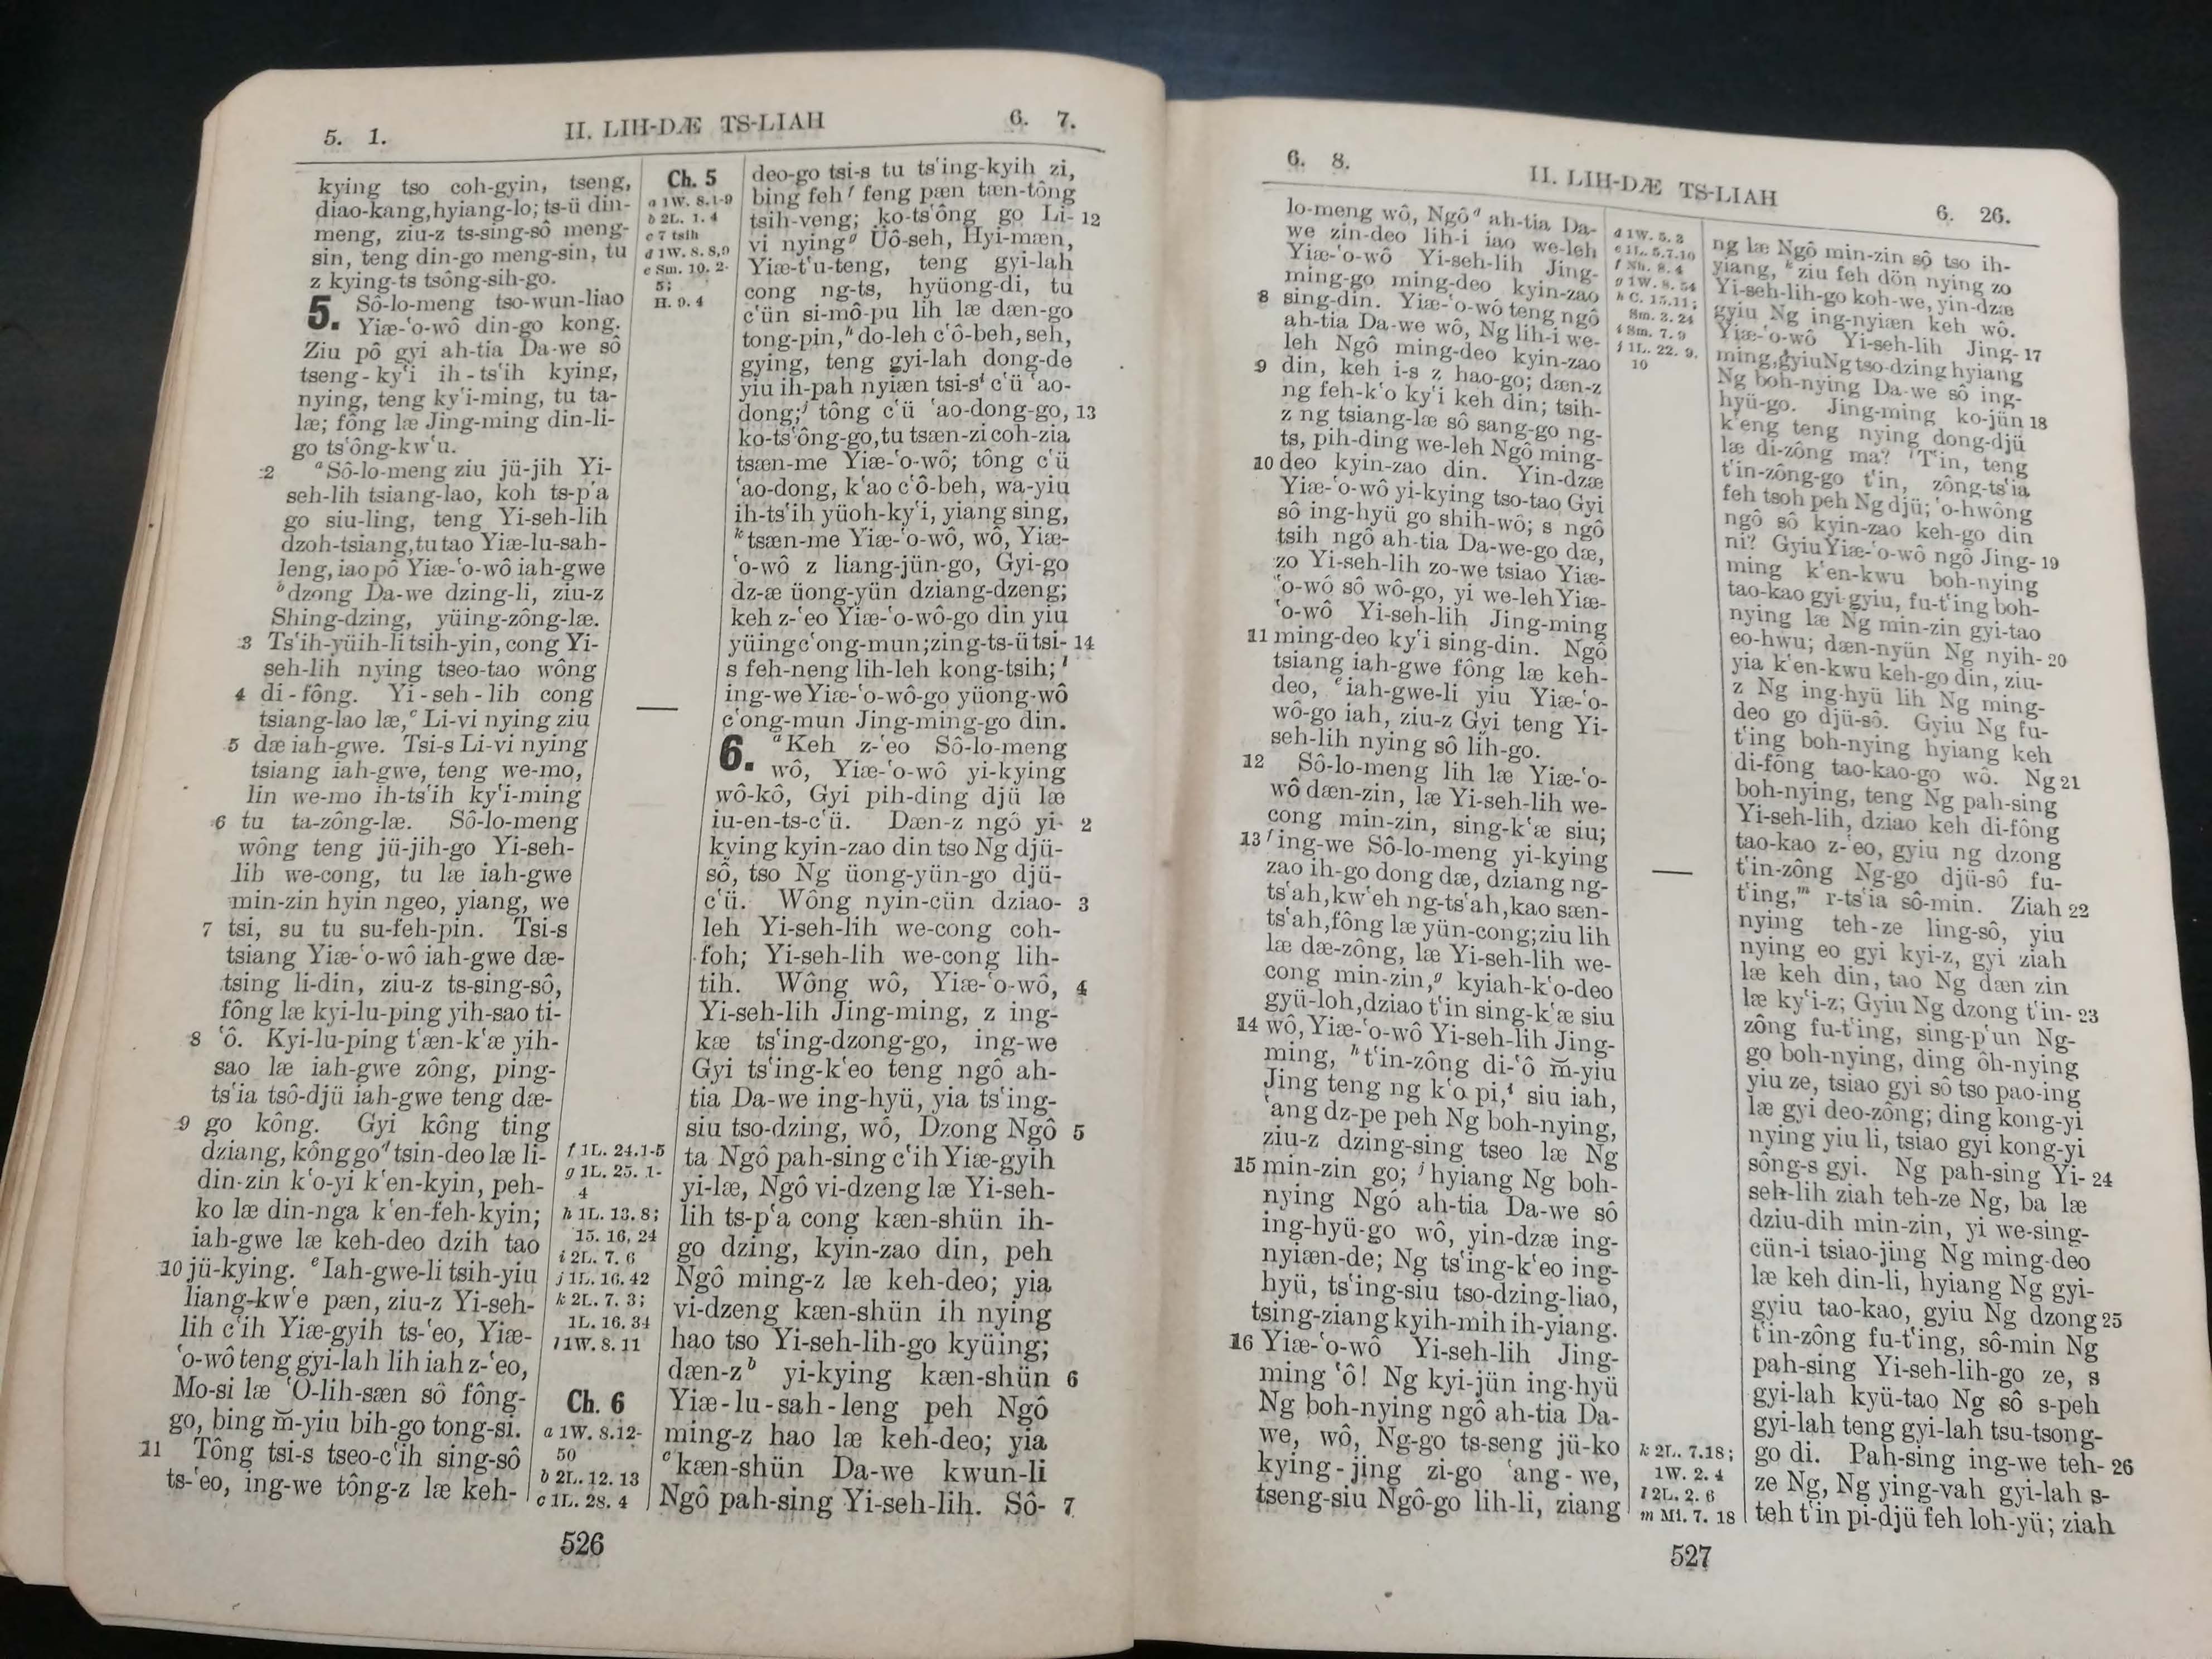 5. 1.
II. LIH-DÆ TS-LIAH
6. 7.
kying tso coh-gyin, tseng,
diao-kang, hyiang-lo; ts-ü din-
meng, ziu-z ts-sing-sô meng-
sin, teng din-go meng-sin, tu
z kying-ts tsông-sih-go.
5. Sô-lo-meng tso-wun-liao
Yiæ-ʻo-wô din-go kong.
Ziu pô gyi ah-tia Da-we sô
tseng-kyʻi ih-tsʻih kying,
nying, teng kyʻi-ming, tu ta-
læ; fông læ Jing-ming din-li-
go tsʻông-kwʻu.
2 aSô-lo-meng ziu jü-jih Yi-
seh-lih tsiang-lao, koh ts-pʻa
go siu-ling, teng Yi-seh-lih
dzoh-tsiang, tu tao Yiæ-lu-sah-
leng, iao pô Yiæ-ʻo-wô iah-gwe
bdzong Da-we dzing-li, ziu-z
Shing-dzing, yüing-zông-læ.
3 Tsʻih-yüih-li tsih-yin, cong Yi-
seh-lih nying tseo-tao wông
4 di-fông. Yi-seh-lih cong
tsiang-lao læ,c Li-vi nying ziu
5 dæ iah-gwe. Tsi-s Li-vi nying
tsiang iah-gwe, teng we-mo,
lin we-mo ih-tsʻih kyʻi-ming
6 tu ta-zông-læ. Sô-lo-meng
wông teng jü-jih-go Yi-seh-
lih we-cong, tu læ iah-gwe
min-zin hyin ngeo, yiang, we
7 tsi, su tu su-feh-pin. Tsi-s
tsiang Yiæ-ʻo-wô iah-gwe dæ-
tsing li-din, ziu-z ts-sing-sô,
fông læ kyi-lu-ping yih-sao ti-
8 ʻô. Kyi-lu-ping tʻæn-kʻæ yih-
sao læ iah-gwe zông, ping-
tsʻia tsô-djü iah-gwe teng dæ-
9 go kông. Gyi kông ting
dziang, kông god tsin-deo læ li-
din-zin kʻo-yi kʻen-kyin, peh-
ko læ din-nga kʻen-feh-kyin;
iah-gwe læ keh-deo dzih tao
10 jü-kying. eIah-gwe-li tsih-yiu
liang-kwʻe pæn, ziu-z Yi-seh-
lih cʻih Yiæ-gyih ts-ʻeo, Yiæ-
ʻo-wô teng gyi-lah lih iah z-ʻeo,
Mo-si læ ʻO-lih-sæn sô fông-
go, bing m̆-yiu bih-go tong-si.
11 Tông tsi-s tseo-cʻih sing-sô
ts-ʻeo, ing-we tông-z læ keh-
Ch. 5
a 1W. 8.1-9
b 2L. 1. 4
c 7 tsih
d 1W. 8. 8,9
e Sm. 10. 2-
5;
H. 9. 4
f 1L. 24.1-5
g 1L. 25. 1-
4
h 1L. 13. 8;
15. 16, 24
i 2L. 7. 6
j 1L. 16. 42
k 2L. 7. 3;
1L. 16. 34
l 1W. 8. 11
Ch. 6
a 1W. 8.12-
50
b 2L. 12. 13
c 1L. 28. 4
deo-go tsi-s tu tsʻing-kyih zi,
bing fehf feng pæn tæn-tông
tsih-veng; ko-tsʻông go Li- 12
vi nyingg Üô-seh, Hyi-mæn,
Yiæ-tʻu-teng, teng gyi-lah
cong ng-ts, hyüong-di, tu
cʻün si-mô-pu lih læ dæn-go
tong-pin,h do-leh cʻô-beh, seh,
gying, teng gyi-lah dong-de
yiu ih-pah nyiæn tsi-si cʻü ʻao-
dong;j tông cʻü ʻao-dong-go, 13
ko-tsʻông-go, tu tsæn-zi coh-zia
tsæn-me Yiæ-ʻo-wô; tông cʻü
ʻao-dong, kʻao cʻô-beh, wa-yiu
ih-tsʻih yüoh-kyʻi, yiang sing,
ktsæn-me Yiæ-ʻo-wô, wô, Yiæ-
ʻo-wô z liang-jün-go, Gyi-go
dz-æ üong-yün dziang-dzeng;
keh z-ʻeo Yiæ-ʻo-wô-go din yiu
yüing cʻong-mun; zing-ts-ü tsi- 14
s feh-neng lih-leh kong-tsih;l
ing-we Yiæ-ʻo-wô-go yüong-wô
cʻong-mun Jing-ming-go din.
6. aKeh z-ʻeo Sô-lo-meng
wô, Yiæ-ʻo-wô yi-kying
wô-kô, Gyi pih-ding djü læ
iu-en-ts-cʻü. Dæn-z ngô yi- 2
kying kyin-zao din tso Ng djü-
sô, tso Ng üong-yün-go djü-
cʻü. Wông nyin-cün dziao- 3
leh Yi-seh-lih we-cong coh-
foh; Yi-seh-lih we-cong lih-
tih. Wông wô, Yiæ-ʻo-wô, 4
Yi-seh-lih Jing-ming, z ing-
kæ tsʻing-dzong-go, ing-we
Gyi tsʻing-kʻeo teng ngô ah-
tia Da-we ing-hyü, yia tsʻing-
siu tso-dzing, wô, Dzong Ngô 5
ta Ngô pah-sing cʻih Yiæ-gyih
yi-læ, Ngô vi-dzeng læ Yi-seh-
lih ts-pʻa cong kæn-shün ih-
go dzing, kyin-zao din, peh
Ngô ming-z læ keh-deo; yia
vi-dzeng kæn-shün ih nying
hao tso Yi-seh-lih-go kyüing;
dæn-zb yi-kying kæn-shün 6
Yiæ-lu-sah-leng peh Ngô
ming-z hao læ keh-deo; yia
ckæn-shün Da-we kwun-li
Ngô pah-sing Yi-seh-lih. Sô- 7
526
6. 8.
II. LIH-DÆ TS-LIAH
6. 26.
lo-meng wô, Ngôd ah-tia Da-
we zin-deo lih-i iao we-leh
Yiæ-ʻo-wô Yi-seh-lih Jing-
ming-go ming-deo kyin-zao
8 sing-din. Yiæ-ʻo-wô teng ngô
ah-tia Da-we wô, Ng lih-i we-
leh Ngô ming-deo kyin-zao
9 din, keh i-s z hao-go; dæn-z
ng feh-kʻo kyʻi keh din; tsih-
z ng tsiang-læ sô sang-go ng-
ts, pih-ding we-leh Ngô ming-
10 deo kyin-zao din. Yin-dzæ
Yiæ-ʻo-wô yi-kying tso-tao Gyi
sô ing-hyü go shih-wô; s ngô
tsih ngô ah-tia Da-we-go dæ,
zo Yi-seh-lih zo-we tsiao Yiæ-
ʻo-wô sô wô-go, yi we-leh Yiæ-
ʻo-wô Yi-seh-lih Jing-ming
11 ming-deo kyʻi sing-din. Ngô
tsiang iah-gwe fông læ keh-
deo, eiah-gwe-li yiu Yiæ-ʻo-
wô-go iah, ziu-z Gyi teng Yi-
seh-lih nying sô lih-go.
12 Sô-lo-meng lih læ Yiæ-ʻo-
wô dæn-zin, læ Yi-seh-lih we-
cong min-zin, sing-kʻæ siu;
13 fing-we Sô-lo-meng yi-kying
zao ih-go dong dæ, dziang ng-
tsʻah, kwʻeh ng-tsʻah, kao sæn-
tsʻah, fông læ yün-cong; ziu lih
læ dæ-zông, læ Yi-seh-lih we-
cong min-zin,g kyiah-kʻo-deo
gyü-loh, dziao tʻin sing-kʻæ siu
14 wô, Yiæ-ʻo-wô Yi-seh-lih Jing-
ming, htʻin-zông di-ʻô m̆-yiu
Jing teng ng kʻo pi,i siu iah,
ʻang dz-pe peh Ng boh-nying,
ziu-z dzing-sing tseo læ Ng
15 min-zin go; jhyiang Ng boh-
nying Ngô ah-tia Da-we sô
ing-hyü-go wô, yin-dzæ ing-
nyiæn-de; Ng tsʻing-kʻeo ing-
hyü, tsʻing-siu tso-dzing-liao,
tsing-ziang kyih-mih ih-yiang.
16 Yiæ-ʻo-wô Yi-seh-lih Jing-
ming ʻô! Ng kyi-jün ing-hyü
Ng boh-nying ngô ah-tia Da-
we, wô, Ng-go ts-seng jü-ko
kying-jing zi-go ʻang-we,
tseng-siu Ngô-go lih-li, ziang
d 1W. 5. 3
e 1L. 5.7.10
f Nh. 8. 4
g 1W. 8. 54
h C. 15.11;
Sm. 3. 24
i Sm. 7. 9
j 1L. 22. 9,
10
k 2L. 7.18;
1W. 2. 4
l 2L. 2. 6
m Mi. 7. 18
ng læ Ngô min-zin sô tso ih-
yiang, kziu feh dön nying zo
Yi-seh-lih-go koh-we, yin-dzæ
gyiu Ng ing-nyiæn keh wô.
Yiæ-ʻo-wô Yi-seh-lih Jing- 17
ming, gyiu Ng tso-dzing hyiang
Ng boh-nying Da-we sô ing-
hyü-go. Jing-ming ko-jün 18
kʻeng teng nying dong-djü
læ di-zông ma? lTʻin, teng
tʻin-zông-go tʻin, zông-tsʻia
feh tsoh peh Ng djü; ʻo-hwông
ngô sô kyin-zao keh-go din
ni? Gyiu Yiæ-ʻo-wô ngô Jing- 19
ming kʻen-kwu boh-nying
tao-kao gyi-gyiu, fu-tʻing boh-
nying læ Ng min-zin gyi-tao
eo-hwu; dæn-nyün Ng nyih- 20
yia kʻen-kwu keh-go din, ziu-
z Ng ing-hyü lih Ng ming-
deo go djü-sô. Gyiu Ng fu-
tʻing boh-nying hyiang keh
di-fông tao-kao-go wô. Ng 21
boh-nying, teng Ng pah-sing
Yi-seh-lih, dziao keh di-fông
tao-kao z-ʻeo, gyiu ng dzong
tʻin-zông Ng-go djü-sô fu-
tʻing,m r-tsʻia sô-min. Ziah 22
nying teh-ze ling-sô, yiu
nying eo gyi kyi-z, gyi ziah
læ keh din, tao Ng dæn zin
læ kyʻi-z; Gyiu Ng dzong tʻin- 23
zông fu-tʻing, sing-pʻun Ng-
go boh-nying, ding ôh-nying
yiu ze, tsiao gyi sô tso pao-ing
læ gyi deo-zông; ding kong-yi
nying yiu li, tsiao gyi kong-yi
sông-s gyi. Ng pah-sing Yi- 24
seh-lih ziah teh-ze Ng, ba læ
dziu-dih min-zin, yi we-sing-
cün-i tsiao-jing Ng ming-deo
læ keh din-li, hyiang Ng gyi-
gyiu tao-kao, gyiu Ng dzong 25
tʻin-zông fu-tʻing, sô-min Ng
pah-sing Yi-seh-lih-go ze, s
gyi-lah kyü-tao Ng sô s-peh
gyi-lah teng gyi-lah tsu-tsong-
go di. Pah-sing ing-we teh- 26
ze Ng, Ng ying-vah gyi-lah s-
teh tʻin pi-djü feh loh-yü; ziah
527